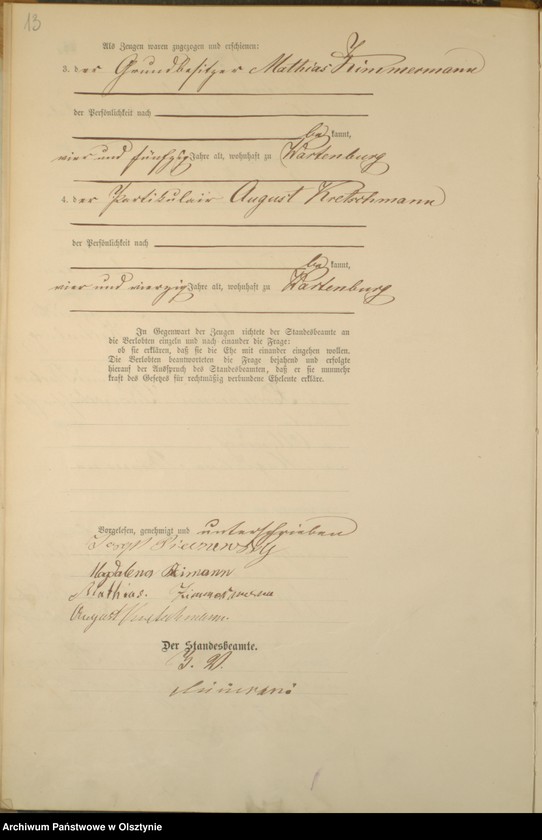 13
Als Zeugen waren zugezogen und erschienen:
3. der Grundbesitzer Mathias Zimmermann
der Persönlichkeit nach
be kannt,
vier und fünfzig Jahre alt, wohnhaft zu Wartenburg
4. der Partikulair August Kretschmann
der Persönlichkeit nach
be kannt,
vier und vierzig Jahre alt, wohnhaft zu Wartenburg
In Gegenwart der Zeugen richtete der Standesbeamte an
die Verlobten einzeln und nach einander die Frage:
ob sie erklären, daß sie die Ehe mit einander eingehen wollen.
Die Verlobten beantworteten die Frage bejahend und erfolgte
hierauf der Ausspruch des Standesbeamten, daß er sie nunmehr
kraft des Gesetzes für rechtmäßig verbundene Eheleute erkläre.
Vorgelesen, genehmigt und unterschrieben
Magdalena
Mathias. Zimmermann
August Kretschmann.
Der Standesbeamte.
Archiwum Państwowe w Olsztynie